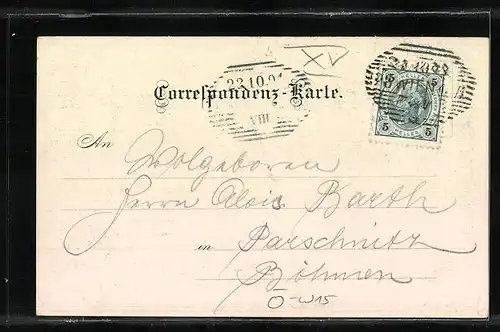 XV
23.10.01
VIII
Correspondenz-Karte.
WIEN
5 HELLER 5
An Wolgeboren
Herrn Alois Barth
in Parschnitz
Böhmen
O-W15